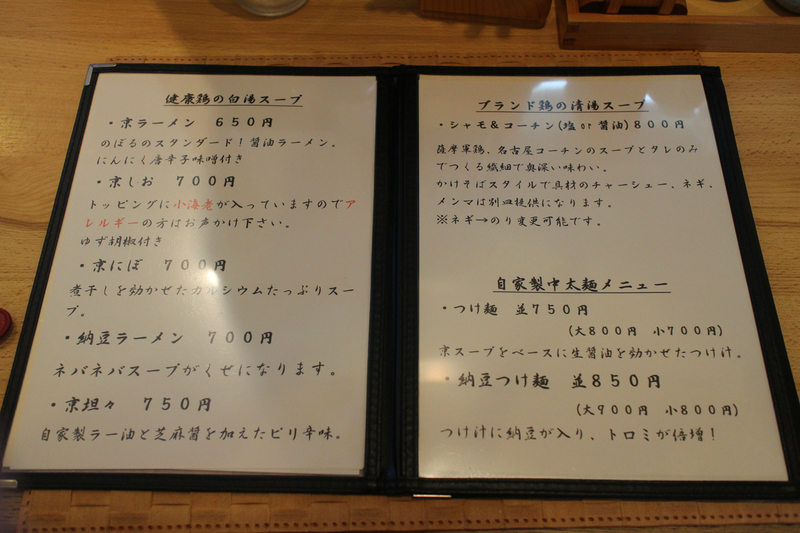 健康鶏の白湯スープ
・京ラーメン 650円
のぼるのスタンダード!醤油ラーメン。
にんにく唐辛子味噌付き
・京しお 700円
トッピングに小海老が入っていますのでア
レルギーの方はお声かけ下さい。
ゆず胡椒付き
・京にぼ 700円
煮干しを効かせたカルシウムたっぷりスー
プ。
・納豆ラーメン 700円
ネバネバスープがくせになります。
・京坦々 750円
自家製ラー油と芝麻醤を加えたピリ辛味。
ブランド鶏の清湯スープ
・シャモ&コーチン(塩or醤油)800円
薩摩軍鶏、名古屋コーチンのスープとタレのみ
でつくる繊細で奥深い味わい。
かけそばスタイルで具材のチャーシュー、ネギ、
メンマは別皿提供になります。
※ネギ→のり変更可能です。
自家製中太麺メニュー
・つけ麺 並750円
(大800円 小700円)
京スープをベースに生醤油を効かせたつけ汁。
・納豆つけ麺 並850円
(大900円 小800円)
つけ汁に納豆が入り、トロミが倍増!